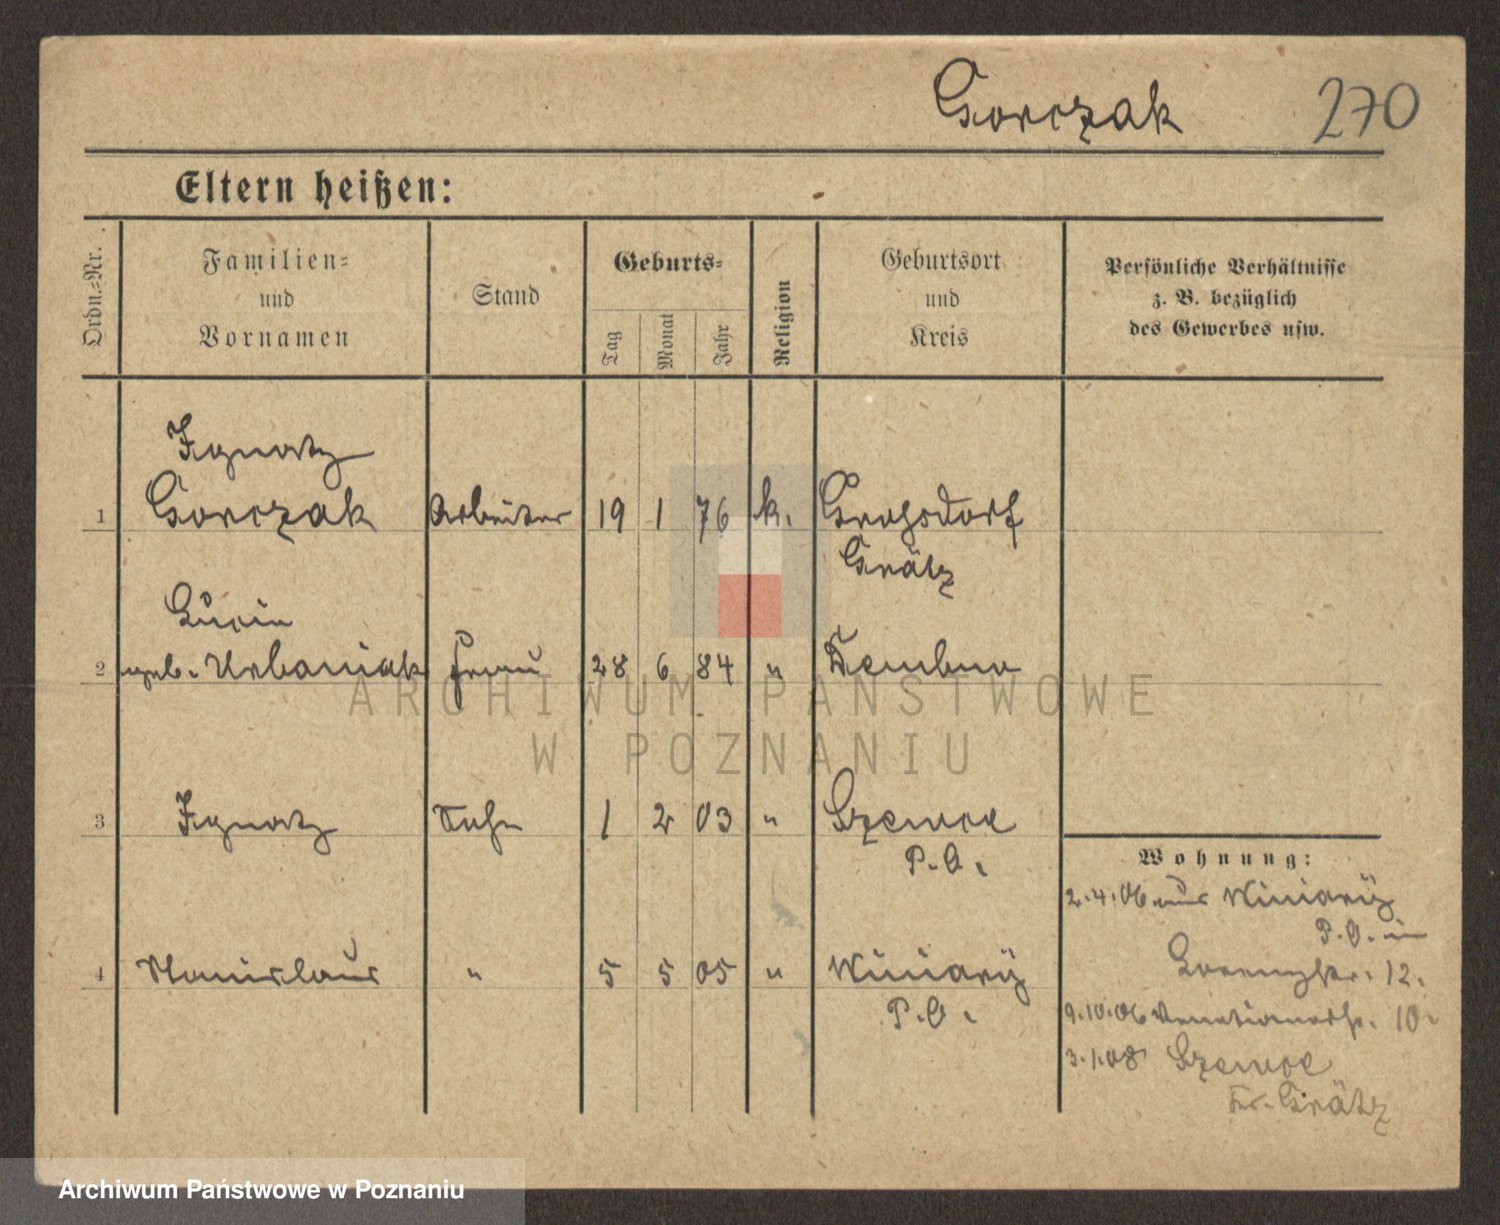 Gorczak 270
Eltern heißen:
Ordn.-Nr.
Familien-
und
Vornamen
Stand
Geburts-
Tag
Monat
Jahr
Religion
Geburtsort
und
Kreis
Persönliche Verhältnisse
z. B. bezüglich
des Gewerbes usw.
Ignatz
1 Gorczak Arbeiter 19 1 76 k. Grohsdorf
Grätz
Lucia
2 geb. Urbaniak Frau 28 6 84 " Dembno
3 Ignatz Sohn 1 2 03 " Szewce
P. O.
4 Stanislaus " 5 5 05 " Winiary
P. O.
Wohnung:
2.4.06 aus Winiary
P. O. in
Lorenzstr. 12.
9.10.06 Venetianerstr. 10.
3.1.08 Szewce
Kr. Grätz
ARCHIWUM PAŃSTWOWE
W POZNANIU
Archiwum Państwowe w Poznaniu